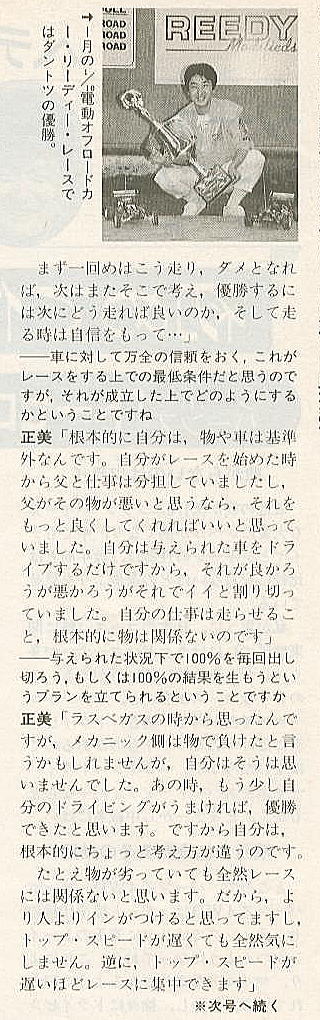 ROAD
ROAD
ROAD
REEDY
→一月の1/10電動オフロードカ
ー・リーディー・レースで
はダントツの優勝。
まず一回めはこう走り，ダメとなれ
ば，次はまたそこで考え，優勝するに
は次にどう走れば良いのか，そして走
る時は自信をもって…」
――車に対して万全の信頼をおく，これが
レースをする上での最低条件だと思うので
すが，それが成立した上でどのようにする
かということですね
正美「根本的に自分は，物や車は基準
外なんです。自分がレースを始めた時
から父と仕事は分担していましたし，
父がその物が悪いと思うなら，それを
もっと良くしてくれればいいと思って
いました。自分は与えられた車をドラ
イブするだけですから，それが良かろ
うが悪かろうがそれでイイと割り切っ
ていました。自分の仕事は走らせるこ
と，根本的に物は関係ないのです」
――与えられた状況下で100％を毎回出し
切ろう，もしくは100％の結果を生もうとい
うプランを立てられるということですか
正美「ラスベガスの時から思ったんで
すが，メカニック側は物で負けたと言
うかもしれませんが，自分はそうは思
いませんでした。あの時，もう少し自
分のドライビングがうまければ，優勝
できたと思います。ですから自分は，
根本的にちょっと考え方が違うのです。
たとえ物が劣っていても全然レース
には関係ないと思います。だから，よ
り人よりインがつけると思ってますし，
トップ・スピードが遅くても全然気に
しません。逆に，トップ・スピードが
遅いほどレースに集中できます」
※次号へ続く